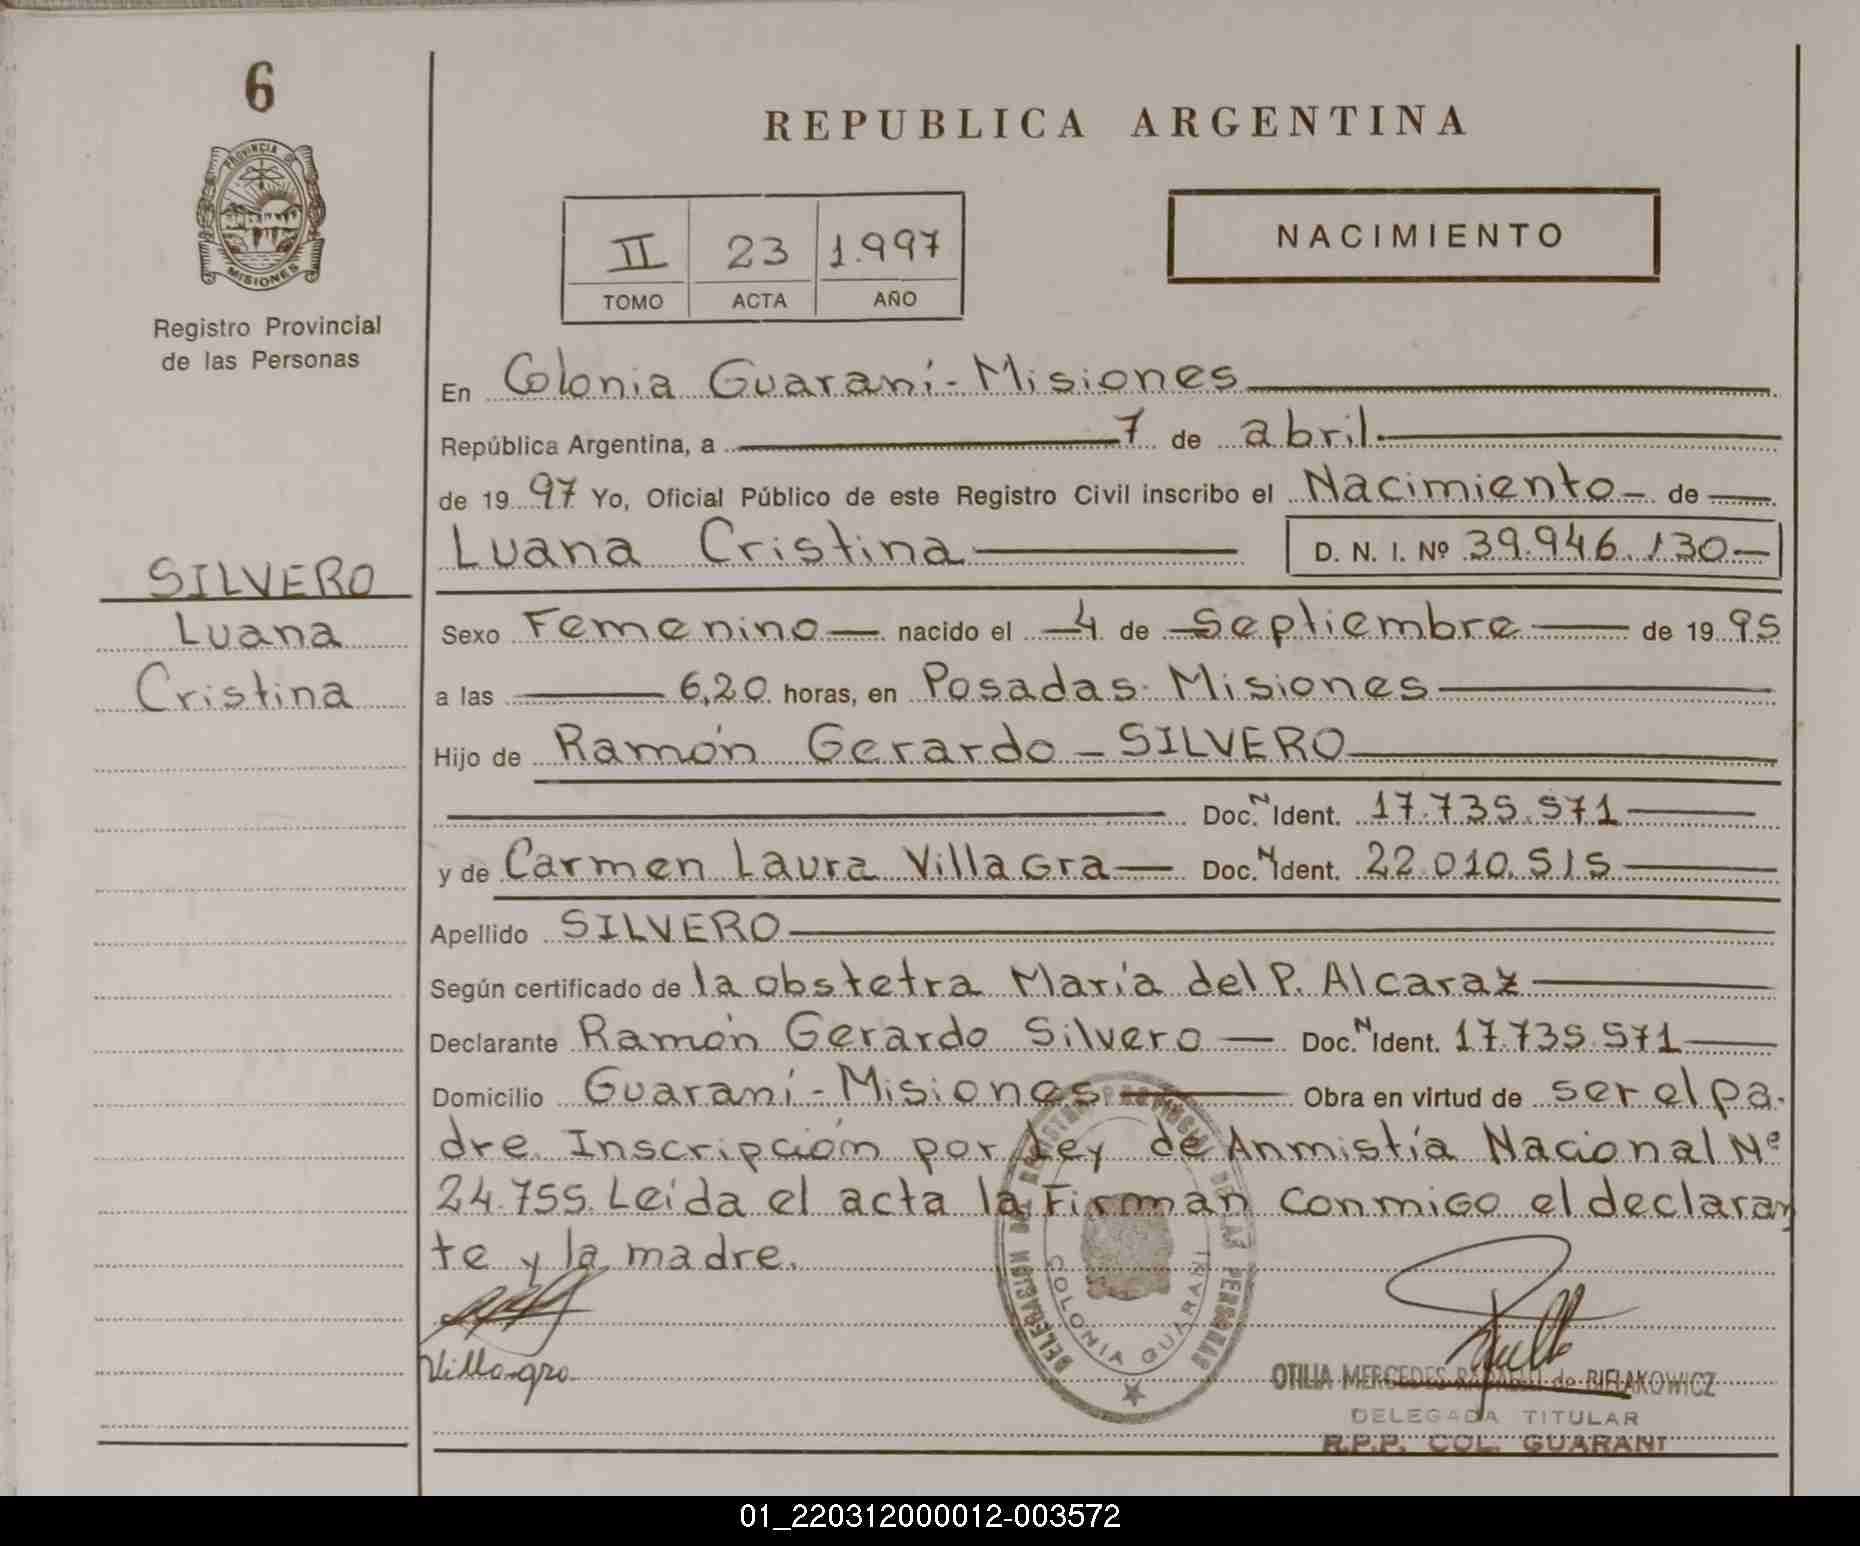 6
PROVINCIA DE
MISIONES
Registro Provincial
de las Personas
SILVERO
Luana
Cristina
REPUBLICA ARGENTINA
II 23 1.997
TOMO ACTA AÑO
NACIMIENTO
En Colonia Guaraní - Misiones
República Argentina, a 7 de abril
de 19 97 Yo, Oficial Público de este Registro Civil inscribo el Nacimiento de
Luana Cristina D. N. I. Nº 39.946.130
Sexo Femenino nacido el 4 de Septiembre de 19 95
a las 6,20 horas, en Posadas - Misiones
Hijo de Ramón Gerardo - SILVERO
Doc. N Ident. 17.735.571
y de Carmen Laura Villagra Doc. N Ident. 22.010.515
Apellido SILVERO
Según certificado de la obstetra María del P. Alcaraz
Declarante Ramón Gerardo Silvero Doc. N Ident. 17.735.571
Domicilio Guaraní - Misiones Obra en virtud de ser el pa-
dre. Inscripción por Ley de Anmistía Nacional Nº
24.755. Leída el acta la Firman conmigo el declaran
te y la madre.
Villagra
DELEGACION REGISTRO PROVINCIAL DE LAS PERSONAS
COLONIA GUARANI
OTILIA MERCEDES de BIELAKOWICZ
DELEGADA TITULAR
R.P.P. COL. GUARANI
01_220312000012-003572